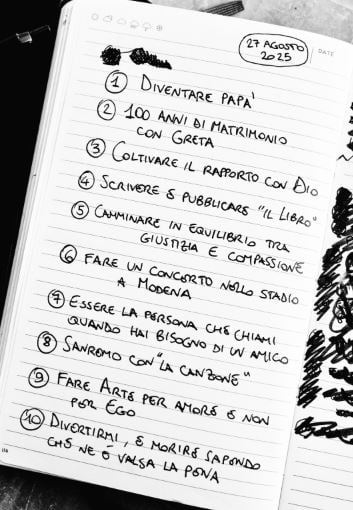 27 AGOSTO
2025
DATE
1 DIVENTARE PAPA'
2 100 ANNI DI MATRIMONIO
CON GRETA
3 COLTIVARE IL RAPPORTO CON DIO
4 SCRIVERE E PUBBLICARE "IL LIBRO"
5 CAMMINARE IN EQUILIBRIO TRA
GIUSTIZIA E COMPASSIONE
6 FARE UN CONCERTO NELLO STADIO
A MODENA
7 ESSERE LA PERSONA CHE CHIAMI
QUANDO HAI BISOGNO DI UN AMICO
8 SANREMO CON "LA CANZONE"
9 FARE ARTE PER AMORE E NON
PER EGO
10 DIVERTIRMI, E MORIRE SAPENDO
CHE NE È VALSA LA PENA